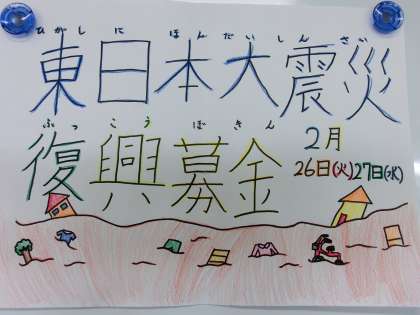 ひがしに ほんだいしんさい
東日本大震災
ふっこうぼきん
復興募金
2月
26日(火)27日(水)